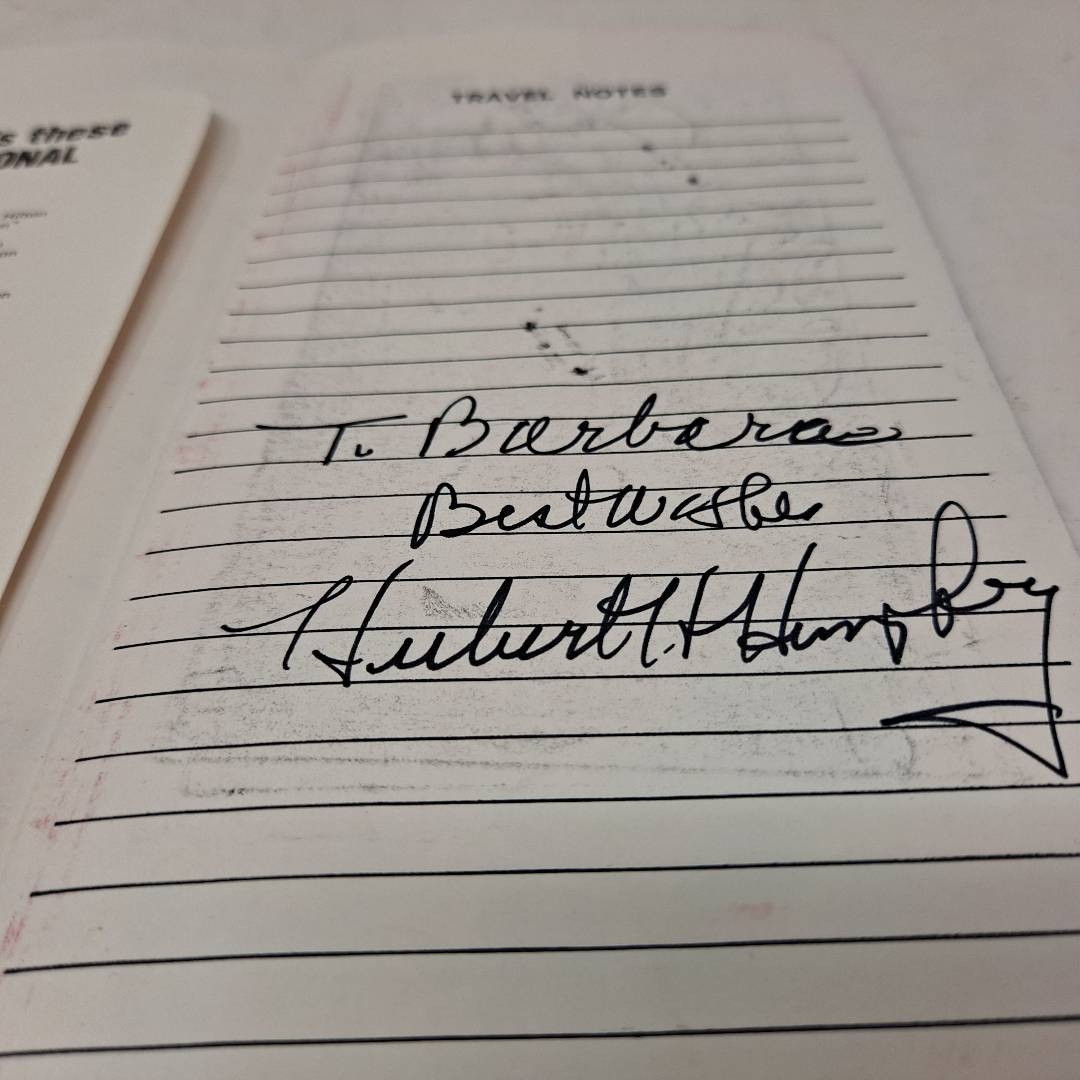 s these
ONAL
TRAVEL NOTES
To Barbara
Best Wishes
Hubert H. Humphrey